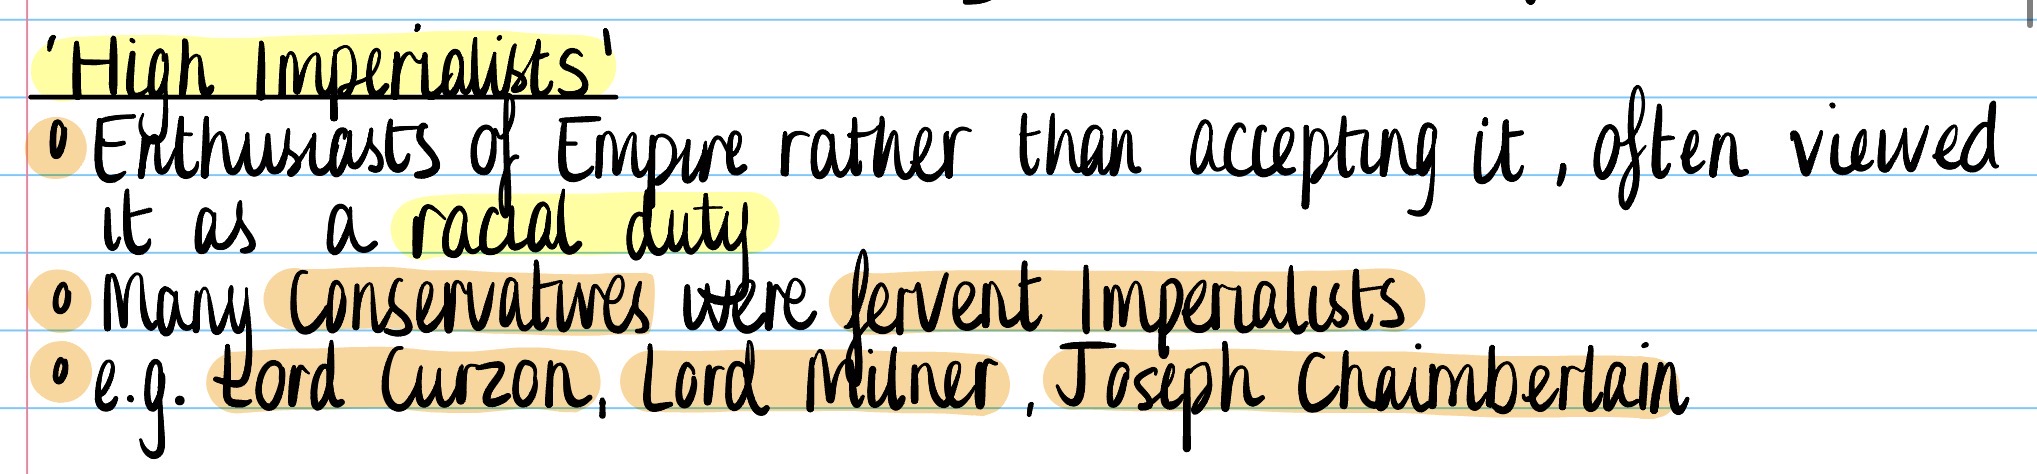 'High Imperialists'
o Enthusiasts of Empire rather than accepting it, often viewed
it as a racial duty
o Many Conservatives were fervent Imperialists
o e.g. Lord Curzon, Lord Milner, Joseph Chaimberlain